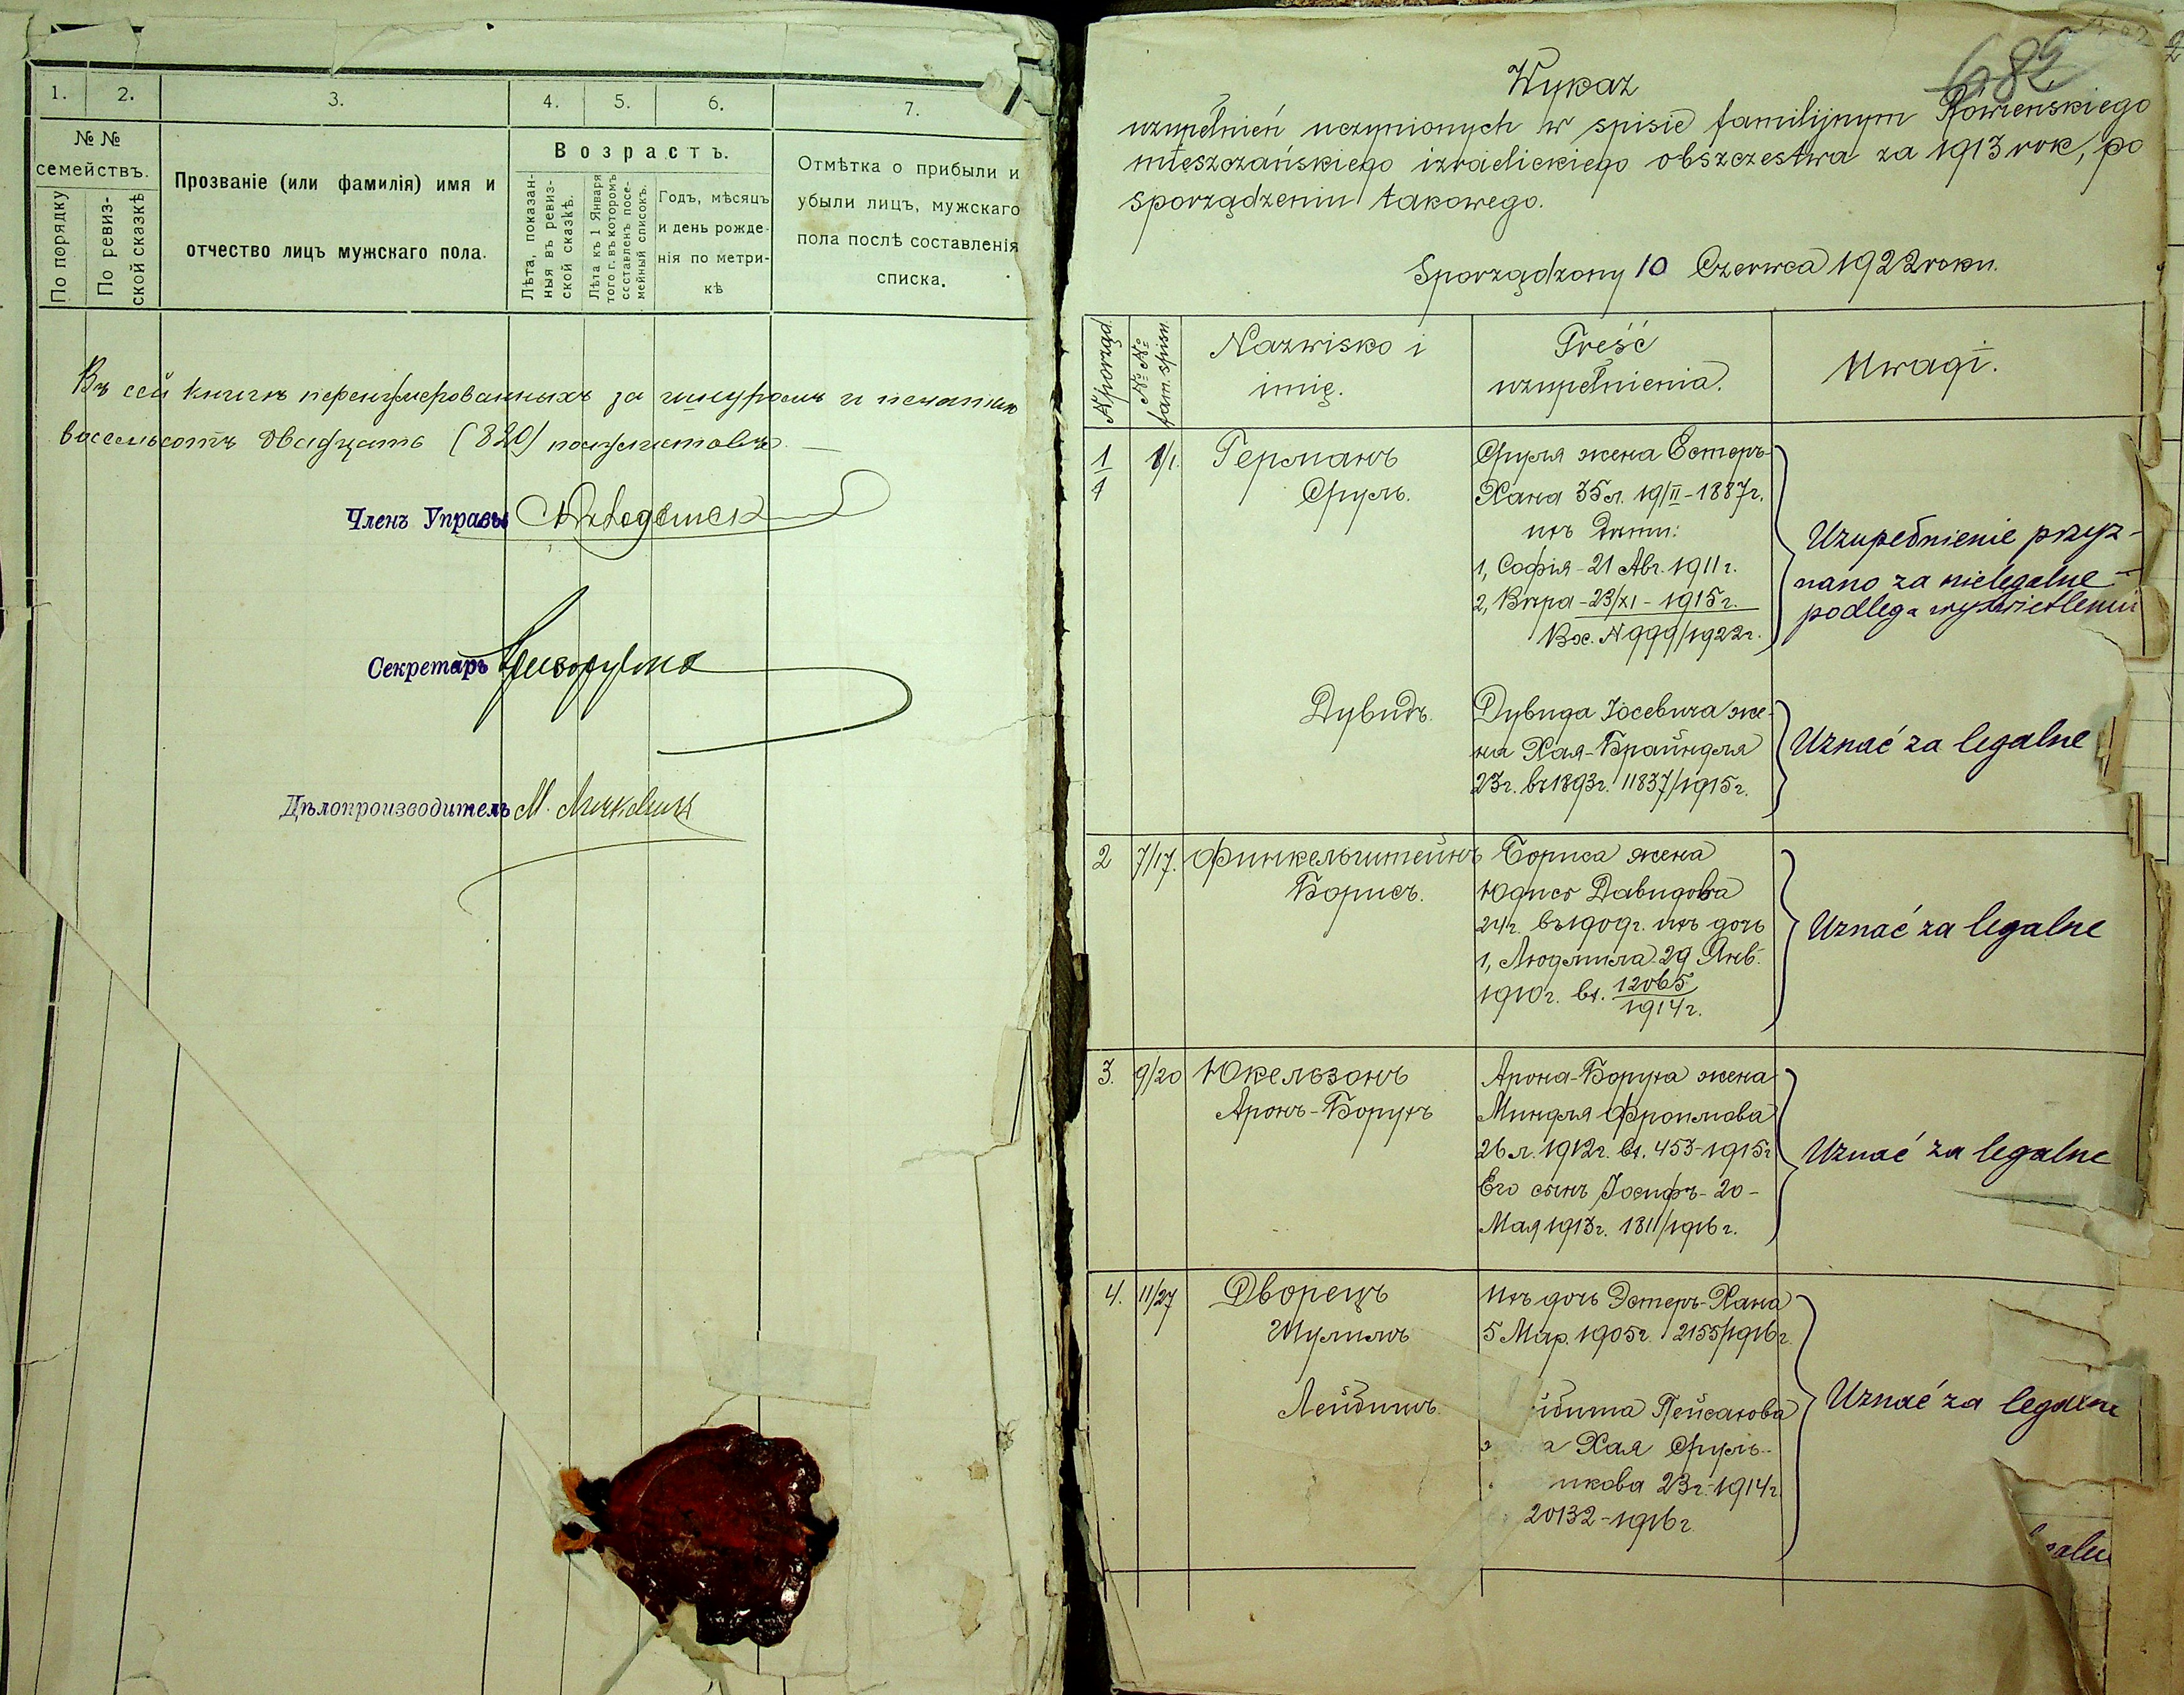 1. 2. 3. 4. 5. 6. 7.
№ №
семействъ.
По порядку
По ревиз-
ской сказкѣ
Прозваніе (или фамилія) имя и
отчество лицъ мужскаго пола.
Возрастъ.
Лѣта, показан-
ныя въ ревиз-
ской сказкѣ.
Лѣта къ 1 Января
того г. въ которомъ
составленъ посе-
мейный списокъ.
Годъ, мѣсяцъ
и день рожде-
нія по метри-
кѣ
Отмѣтка о прибыли и
убыли лицъ, мужскаго
пола послѣ составленія
списка.
Въ сей книгѣ перенумерованныхъ за шнуромъ и печатью
восемьсотъ двадцать (820) полулистовъ
Членъ Управы
Секретарь
Дѣлопроизводитель М.
682
Wykaz
uzupełnień uczynionych w spisie familijnym Rówienskiego
mieszczańskiego izraelickiego obszczestwa za 1913 rok, po
sporządzeniu takowego.
Sporządzony 10 Czerwca 1922 roku.
N porząd.
№ №
fam. spisu
Nazwisko i
imię.
Treść
uzupełnienia.
Uwagi.
1
1/1.
Германъ
Сруль.
Сруля жена Естеръ-
Хана 35 л. 19/II-1887г.
ихъ дѣти:
1, Софія - 21 Авг. 1911 г.
2, Вѣра - 23/XI - 1915 г.
Вх. N 999/1922г.
Uzupełnienie przyz-
nano za nielegalne -
podlega wyświetleniu
Дувидъ.
Дувида Іосевича же-
на Хая-Брайндля
23г. въ 1893г. 11837/1915г.
Uznać za legalne
2 7/17. Финкельштейнъ
Борисъ.
Бориса жена
Юдись Давидова
24г. въ 1909г. ихъ дочь
1, Людмила 29 Янв.
1910г. вх. 12065
1914г.
Uznać za legalne
3. 9/20 Юкельзонъ
Аронъ-Борухъ
Арона-Боруха жена
Миндля Фроимова
26 л. 1912г. вх. 453-1915г
Его сынъ Іосифъ - 20 -
Мая 1913г. 1811/1916г.
Uznać za legalne
4. 11/27 Дворецъ
Шулимъ
Ихъ дочь Эстеръ-Хана
5 Мар. 1905г. 2155/1916г.
Лейбишъ
Пейсахова
Хая Сруль-
икова 23г. 1914г.
20132-1916г.
Uznać za legalne